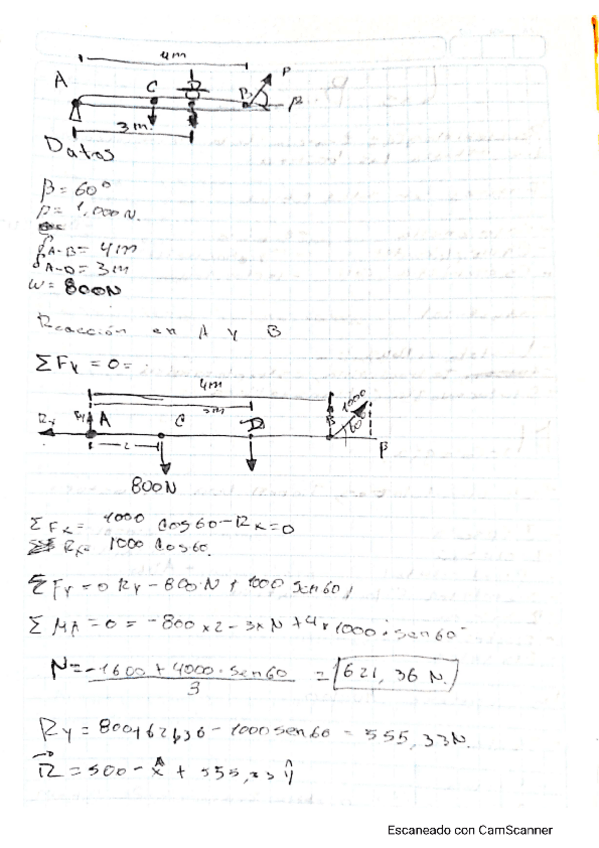 4m
A C D B P β
3m
Datos
β = 60°
P = 1,000N.
∫A-B = 4m
∫A-D = 3m
W = 800N
Reacción en A y B
ΣFy = 0 =
4m
3m
Rx Ry A C D B 1000 60 β
2
800N
ΣFx = 1000 Cos60 - Rx = 0
Rx = 1000 Cos60.
ΣFy = 0 Ry - 800 N + 1000 sen60
ΣMA = 0 = -800 x 2 - 3 x N + 4 x 1000 · sen60
N = -1600 + 4000 · sen60 = 621,36 N.
3
Ry = 800 + 621,36 - 1000 sen60 = 555,33N.
R = 500 - x̂ + 555,33 ŷ
Escaneado con CamScanner